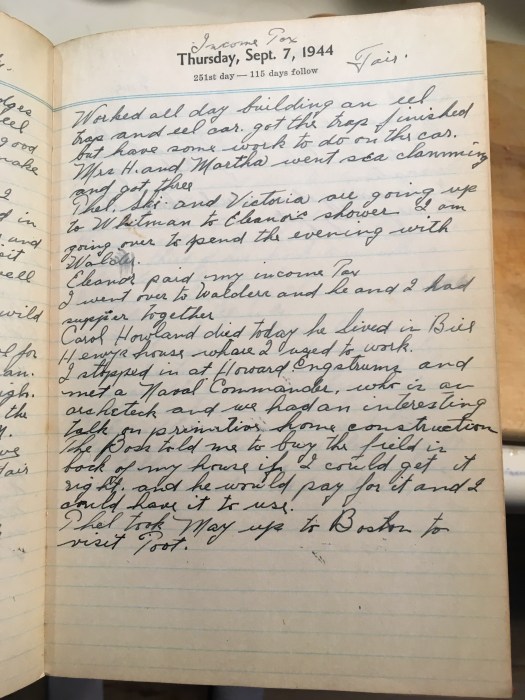 dges
eel
good
make
2
d in
and
sit
well
wild
l for
an.
ugh.
the
y.
we
Fair
Income Tax
Thursday, Sept. 7, 1944
Fair.
251st day — 115 days follow
Worked all day building an eel
trap and eel car. got the trap finished
but have some work to do on the car.
Mrs H. and Martha went sea clamming
and got three
Phel, Ski and Victoria are going up
to Whitman to Eleanor's shower I am
going over to spend the evening with
Walder.
Eleanor paid my income Tax
I went over to Walders and he and I had
supper together
Carol Howland died today he lived in Bill
Henrys house whare I used to work.
I stopped in at Howard Engstrums and
met a Naval Commander, who is an
archeteck and we had an interesting
talk on primitive home construction
The Boss told me to buy the field in
back of my house if I could get it
right, and he would pay for it and I
could have it to use.
Phel took May up to Boston to
visit Toot.